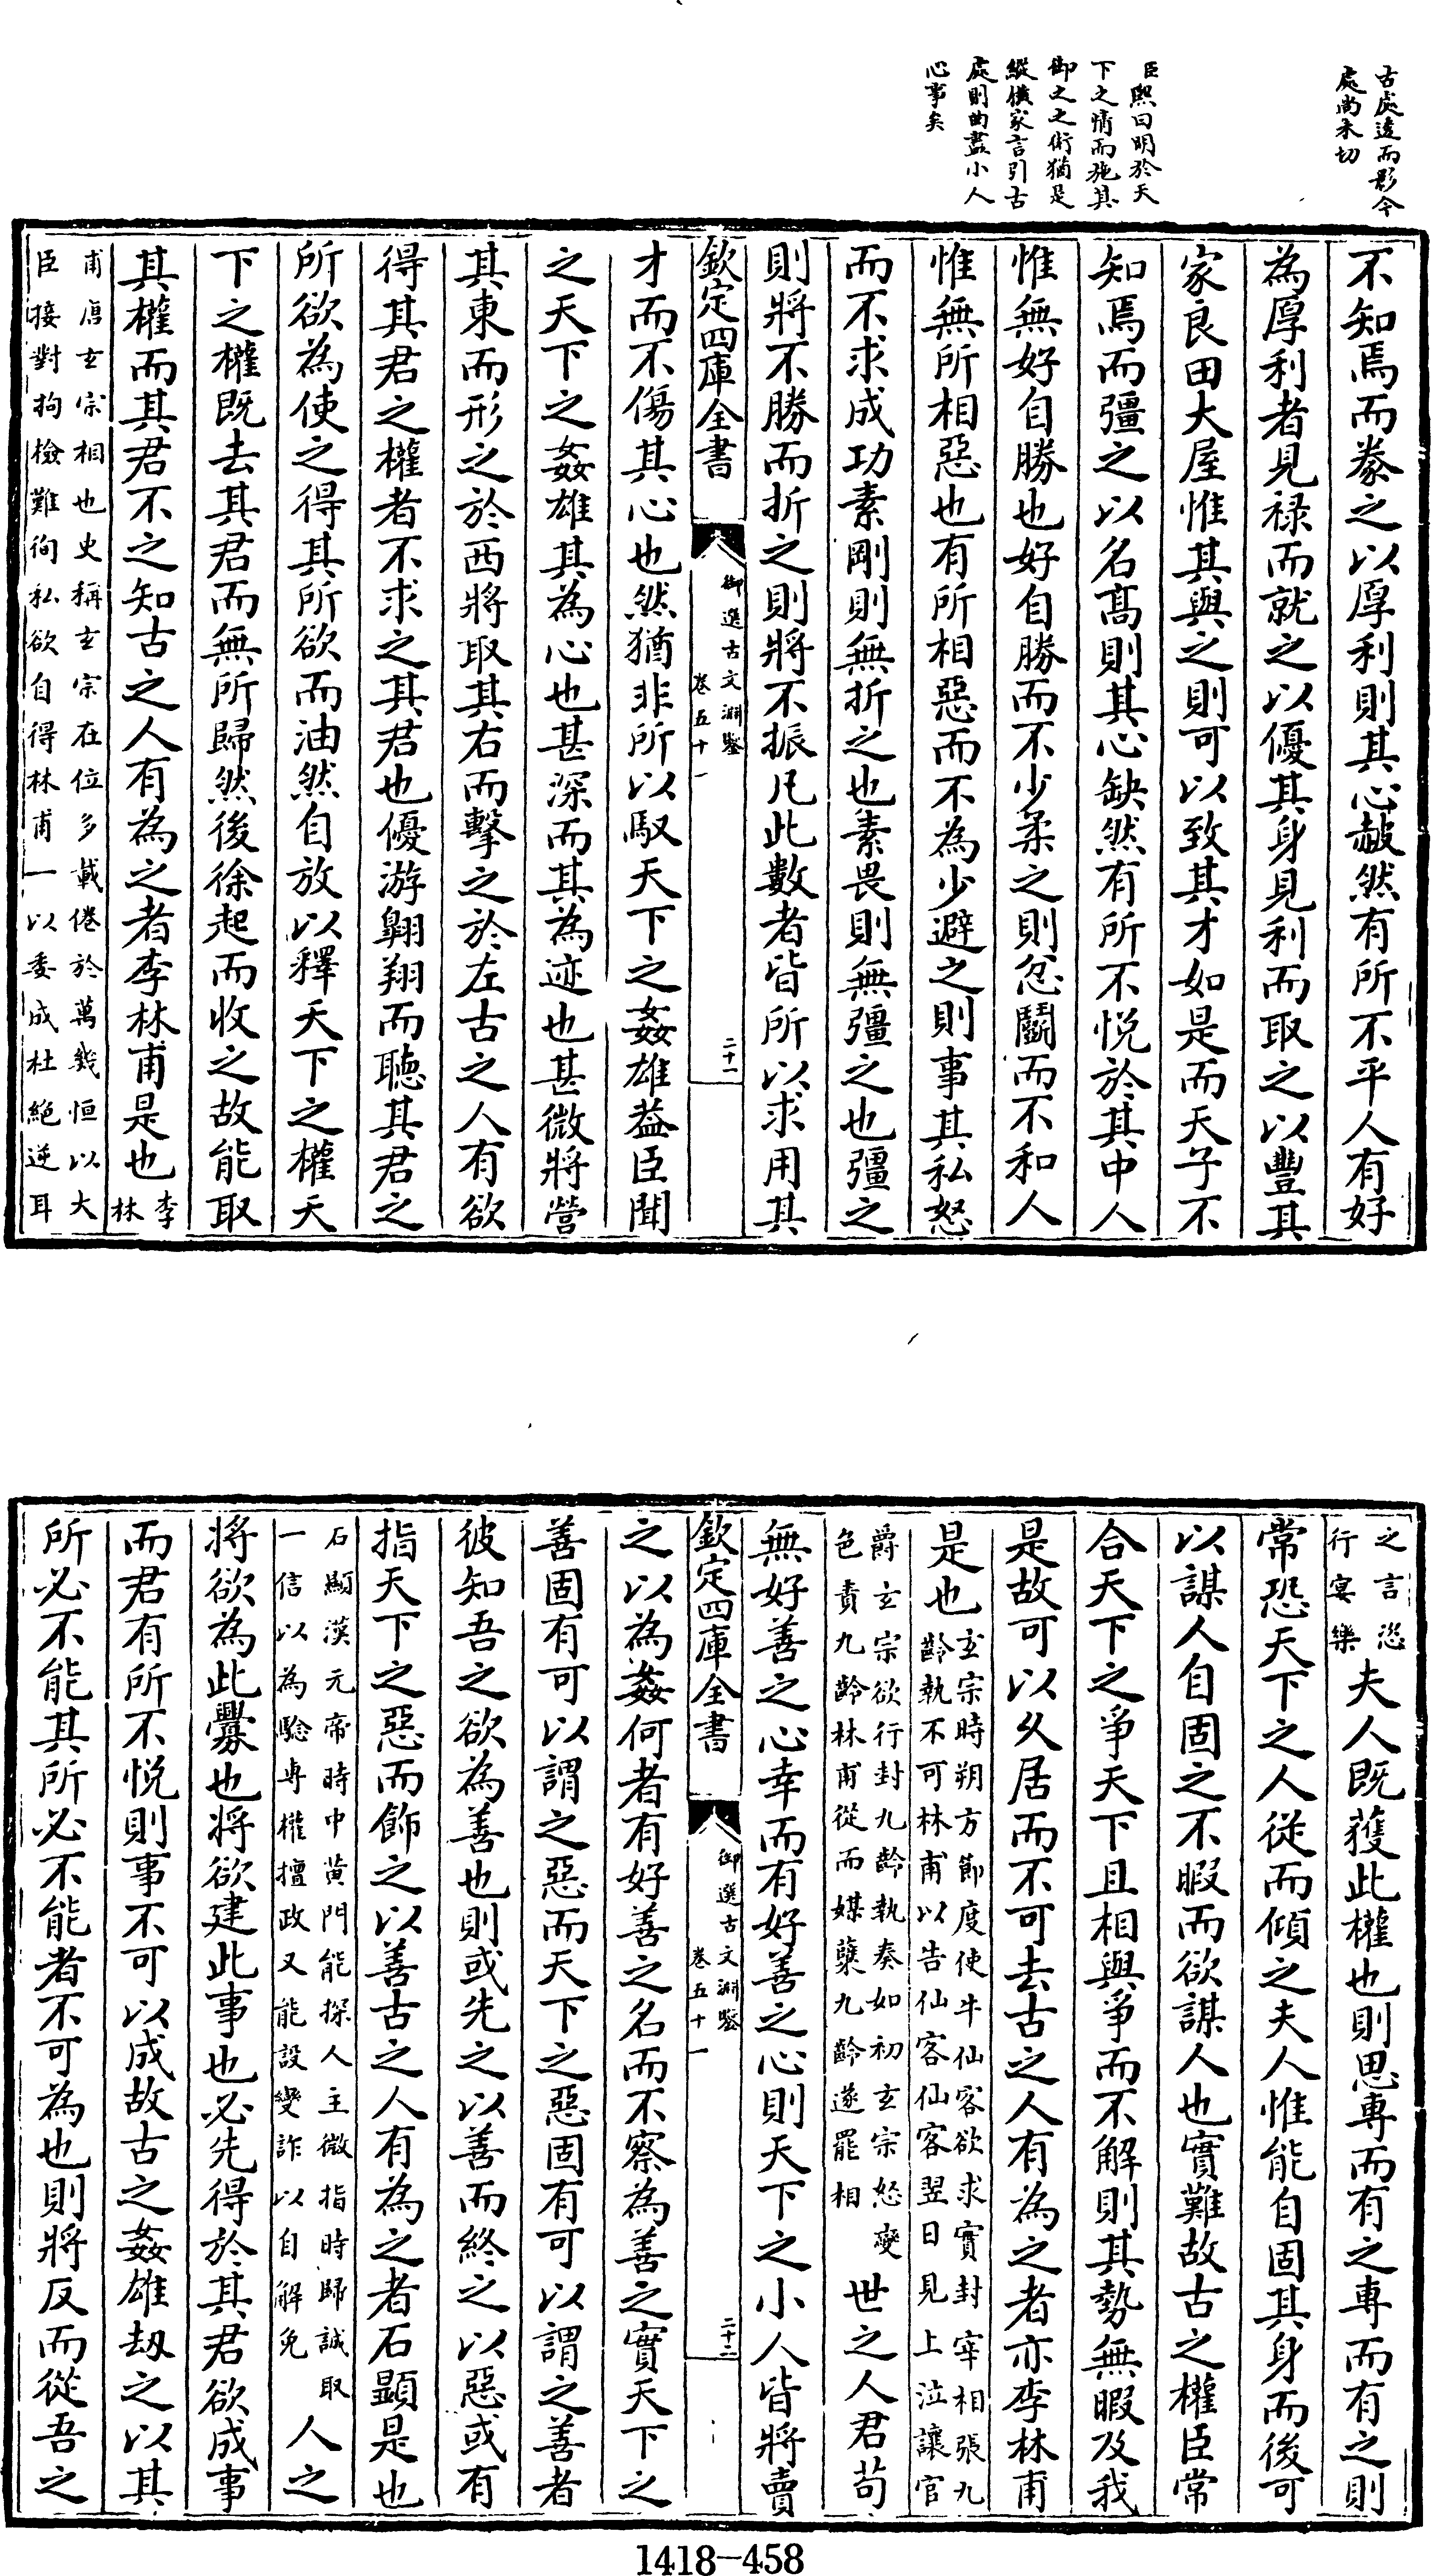 古處遠而影今
處尚未切
臣熙曰明於天
下之情而施其
御之之術猶是
縱橫家言引古
處則曲盡小人
心事矣
不知焉而豢之以厚利則其心赧然有所不平人有好
為厚利者見祿而就之以優其身見利而取之以豐其
家良田大屋惟其與之則可以致其才如是而天子不
知焉而彊之以名高則其心缺然有所不悦於其中人
惟無好自勝也好自勝而不少柔之則忿鬭而不和人
惟無所相惡也有所相惡而不為少避之則事其私怒
而不求成功素剛則無折之也素畏則無彊之也彊之
則將不勝而折之則將不振凡此數者皆所以求用其
欽定四庫全書
御選古文淵鑒
卷五十一
二十一
才而不傷其心也然猶非所以馭天下之姦雄葢臣聞
之天下之姦雄其為心也甚深而其為迹也甚微將營
其東而形之於西將取其右而擊之於左古之人有欲
得其君之權者不求之其君也優游翺翔而聽其君之
所欲為使之得其所欲而油然自放以釋天下之權天
下之權既去其君而無所歸然後徐起而收之故能取
其權而其君不之知古之人有為之者李林甫是也李
林
甫唐玄宗相也史稱玄宗在位多載倦於萬幾恒以大
臣接對拘檢難徇私欲自得林甫一以委成杜絕逆耳
之言恣
行宴樂
夫人既獲此權也則思專而有之專而有之則
常恐天下之人從而傾之夫人惟能自固其身而後可
以謀人自固之不暇而欲謀人也實難故古之權臣常
合天下之爭天下且相與爭而不解則其勢無暇及我
是故可以久居而不可去古之人有為之者亦李林甫
是也
玄宗時朔方節度使牛仙客欲求實封宰相張九
齡執不可林甫以告仙客仙客翌日見上泣讓官
爵玄宗欲行封九齡執奏如初玄宗怒變
色責九齡林甫從而媒蘖九齡遂罷相
世之人君苟
無好善之心幸而有好善之心則天下之小人皆將賣
欽定四庫全書
御選古文淵鑒
卷五十一
二十二
之以為姦何者有好善之名而不察為善之實天下之
善固有可以謂之惡而天下之惡固有可以謂之善者
彼知吾之欲為善也則或先之以善而終之以惡或有
指天下之惡而飾之以善古之人有為之者石顯是也
石顯漢元帝時中黄門能探人主微指時歸誠取
一信以為驗專權擅政又能設變詐以自解免
人之
將欲為此釁也將欲建此事也必先得於其君欲成事
而君有所不悦則事不可以成故古之姦雄刼之以其
所必不能其所必不能者不可為也則將反而從吾之
1418-458